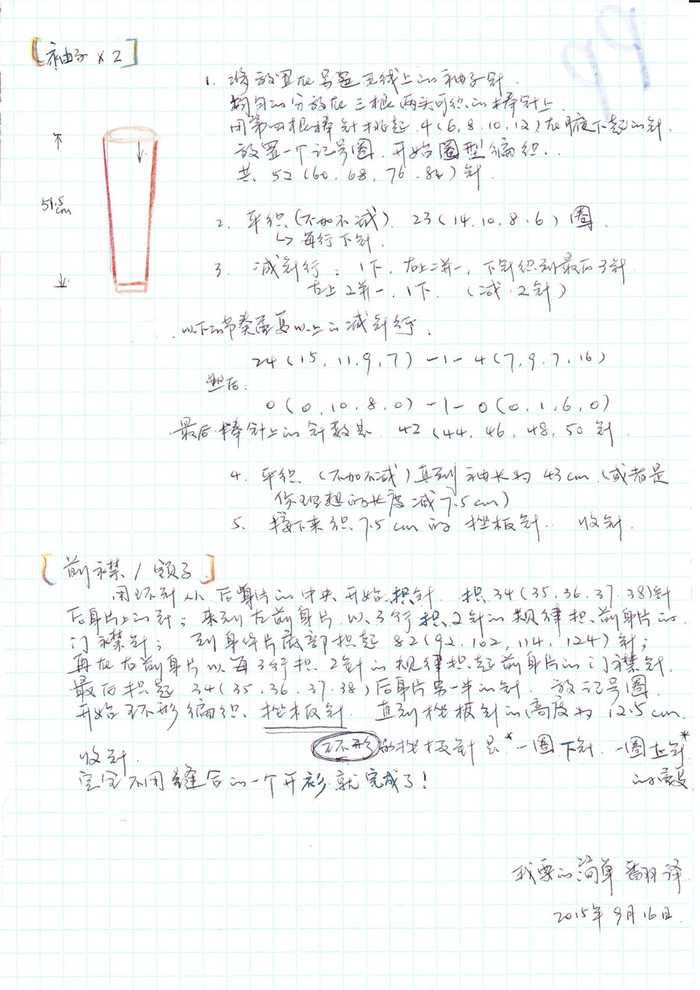 [袖子 x 2]
1. 将放置在另外线上的袖子针.
均匀的分放在三根两头可织的棒针上.
用第四根棒针挑起 4(6,8,10,12)在腋下起的针.
放置一个记号圈. 开始圈型编织..
共 52(60.68,76.84)针.
51.5
cm
2. 平织(不加不减). 23(14.10.8.6)圈.
↳每行下针.
3. 减针行: 1下, 右上2并一, 下针织到最后3针
左上2并一. 1下. (减2针)
以下的节奏重复以上的减针行.
24(15, 11.9,7) -1- 4(7,9.7.16)
然后:
0(0,10,8,0) -1- 0(0,1,6,0)
最后棒针上的针数是 42(44,46,48,50 针
4. 平织 (不加不减)直到袖长为43cm (或者是
你理想的长度减7.5cm)
5. 接下来织7.5cm的搓板针.. 收针.
[前襟/领子.]
用环针从后身片的中央开始挑针. 挑34(35.36.37.38)针
后身片上的针; 来到左前身片以3行挑2针的规律挑前身片的
门襟针; 到身体片底部挑起 82(92,102,114,124)针;
再在右前身片以每3行挑2针的规律挑起前身片的门襟针.
最后挑起 34(35,36,37.38)后身片另一半的针. 放记号圈.
开始环形编织. 搓板针. 直到搓板针的高度为12.5cm.
环形的搓板针是*一圈下针. 一圈上针*
收针.
的重复
完全不用缝合的一个开衫就完成了!
我要的简单 翻译
2015年9月16日